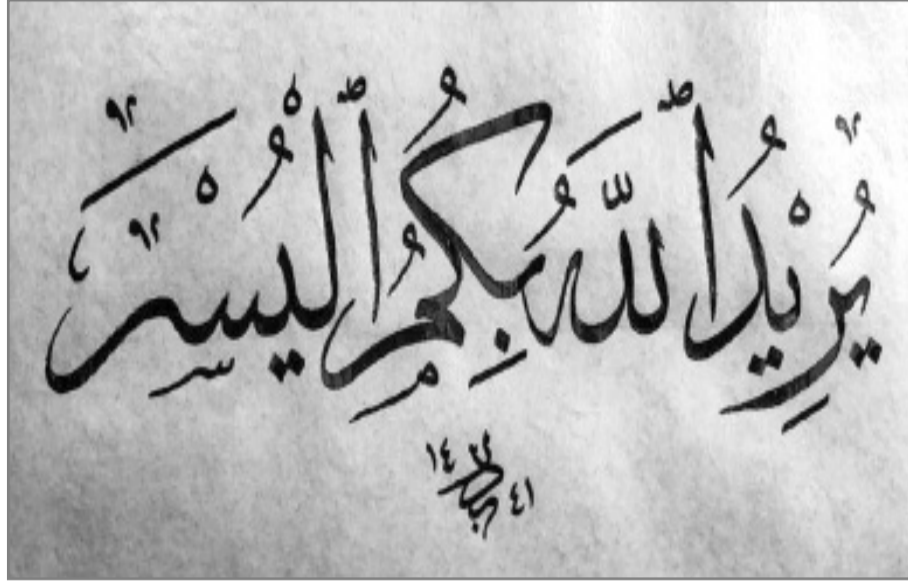 يُرِيدُ ٱللَّهُ بِكُمُ ٱلْيُسْرَ